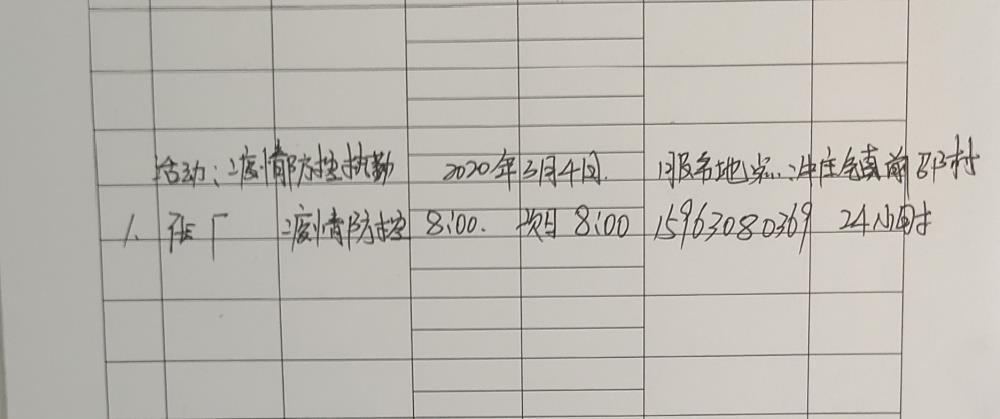 活动:疫情防控执勤 2020年3月4日 服务地点:洼庄镇前邵村
1. 张厂 疫情防控 8:00. 次日 8:00 15963080369 24小时